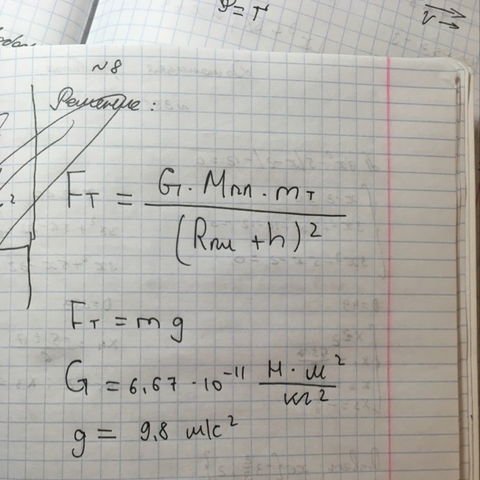 №8
Решение:
Fт = G · Mпл · mт / (Rпл + h)²
Fт = mg
G = 6,67 · 10⁻¹¹ Н · м² / кг²
g = 9,8 м/с²